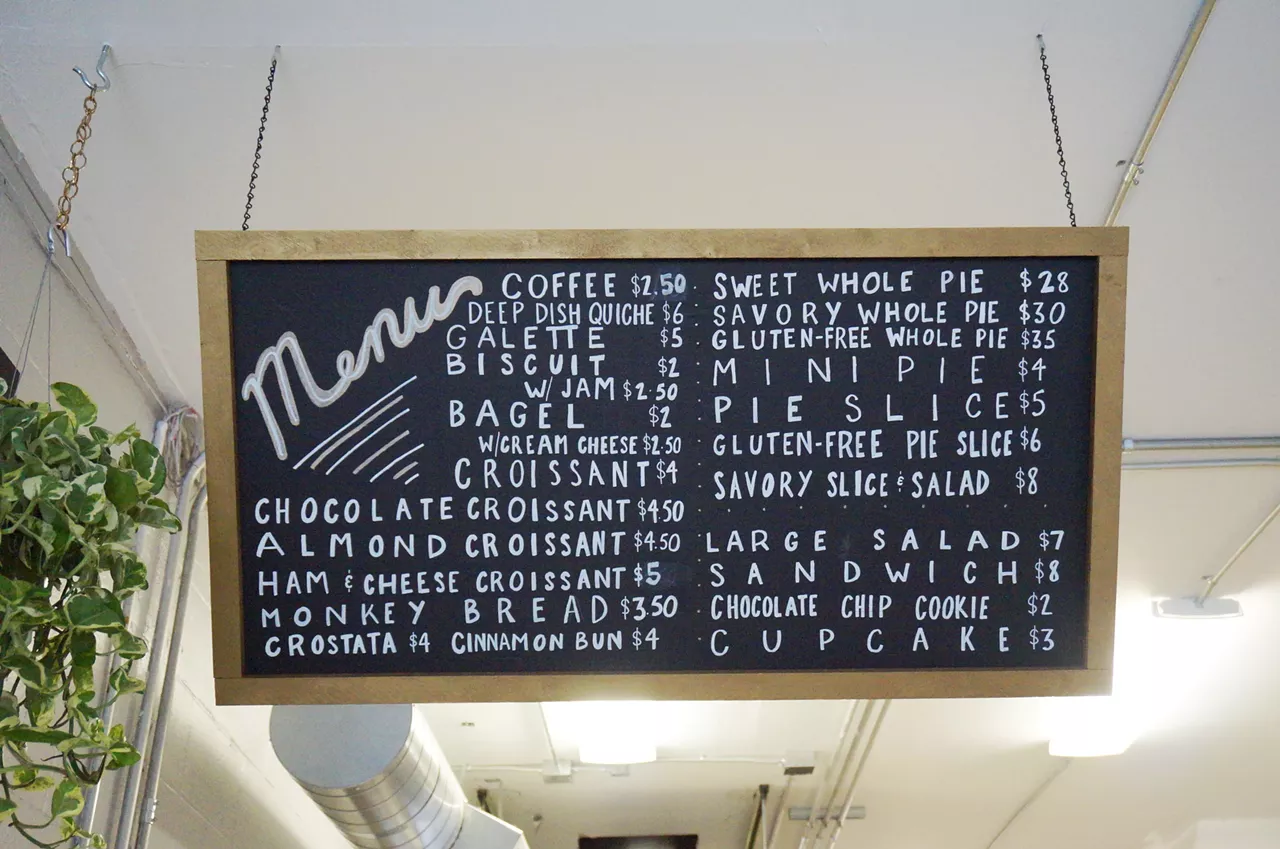 Menu
COFFEE $2.50
DEEP DISH QUICHE $6
GALETTE $5
BISCUIT $2
W/ JAM $2.50
BAGEL $2
W/CREAM CHEESE $2.50
CROISSANT $4
CHOCOLATE CROISSANT $4.50
ALMOND CROISSANT $4.50
HAM & CHEESE CROISSANT $5
MONKEY BREAD $3.50
CROSTATA $4 CINNAMON BUN $4
SWEET WHOLE PIE $28
SAVORY WHOLE PIE $30
GLUTEN-FREE WHOLE PIE $35
MINI PIE $4
PIE SLICE $5
GLUTEN-FREE PIE SLICE $6
SAVORY SLICE & SALAD $8
LARGE SALAD $7
SANDWICH $8
CHOCOLATE CHIP COOKIE $2
CUPCAKE $3